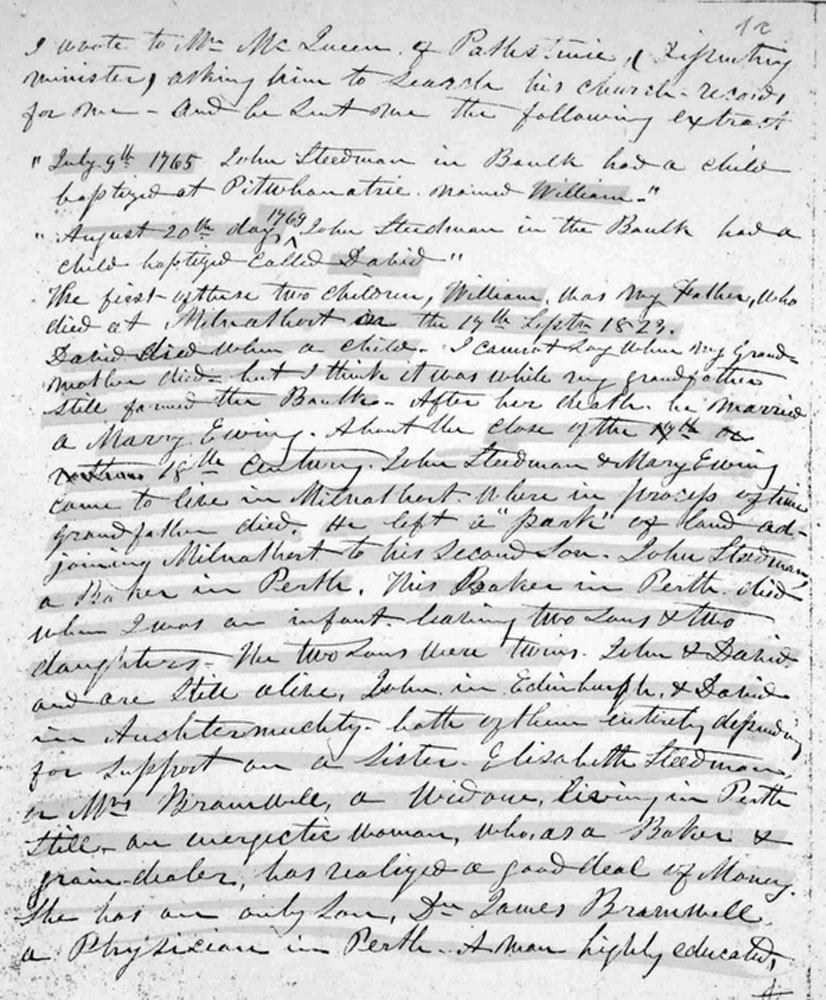 12
I wrote to Mr McQueen of Pathstruie, (Disputing
minister) asking him to search his church-records
for me - and he sent me the following extract
"July 9th 1765 John Steedman in Baulk had a child
baptized at Pitwhanatrie named William."
"August 20th day 1769 John Steedman in the Baulk had a
child baptized called David"
The first of these two children, William, was my Father, who
died at Milnathort on the 17th Septr 1823.
David died when a child. I cannot say when my Grand=
mother died - but I think it was while my grandfather
still farmed the Baulk. After her death he married
a Mary Ewing. About the close of the
18th Century. John Steedman & Mary Ewing
came to live in Milnathort. Where in process of time
grandfather died. He left a "park" of land ad-
joining Milnathort to his second son. John Steedman
a Baker in Perth. This Baker in Perth died
when I was an infant leaving two sons & two
daughters - The two sons were twins. John & David
and are still alive, John in Edinburgh, & David
in Auchtermuchty. both of them entirely depending
for support on a sister. Elisabeth Steedman,
or Mrs Bramwell, a Widow, living in Perth
still - an energetic woman, who, as a Baker &
grain-dealer, has realized a good deal of Money.
She has an only son, Dr James Bramwell
a Physician in Perth. A man highly educated,